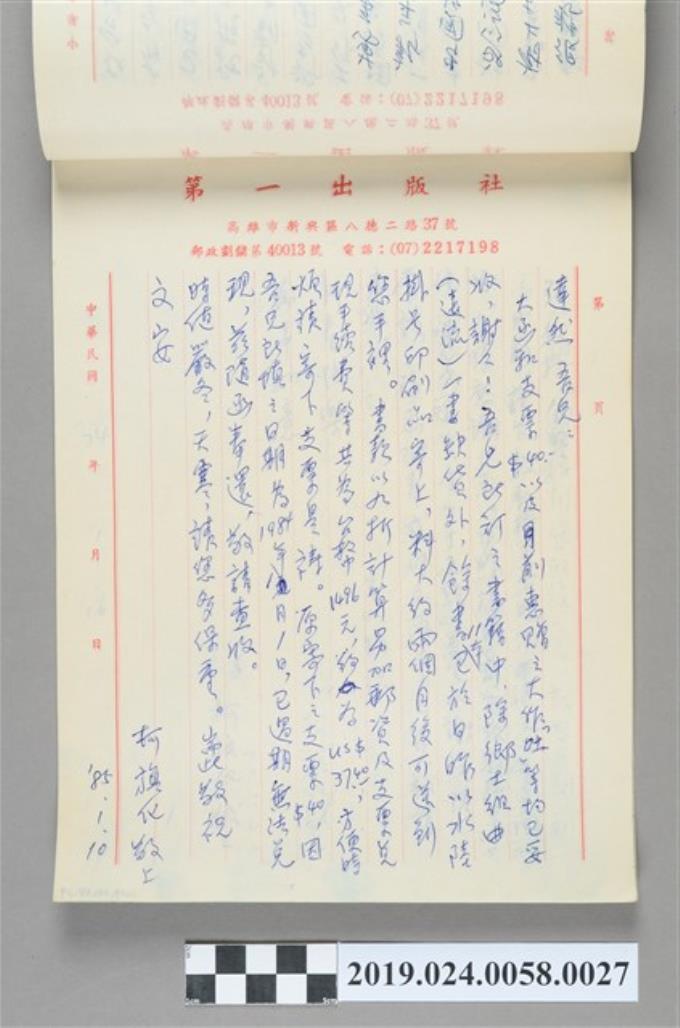 第一出版社
高雄市新興區八德二路37號
郵政劃儲第40013號 電話:(07)2217198
第 頁
達然吾兄:
大函和支票$40.-以及月前惠贈之大作“吐”等均已妥
收,謝謝!吾兄所訂之書籍中,除鄉土組曲
(遠流)一書缺貨外,餘書11本已於日昨以水陸
掛号印刷品寄上,料大約兩個月後可送到
您手裡。書款以九折計算另加郵資及支票兌
現手續費等共為台幣1496元,約為US$37.40,方便時
煩請寄下支票是禱。原寄下之支票$40,因
吾兄所填之日期為1984年 月1日,已過期無法兌
現,茲隨函奉還,敬請查收。
時值嚴冬,天寒,請您多保重。耑此敬祝
文安
柯旗化敬上
'85.1.10
中華民國 年 月 日
2019.024.0058.0027